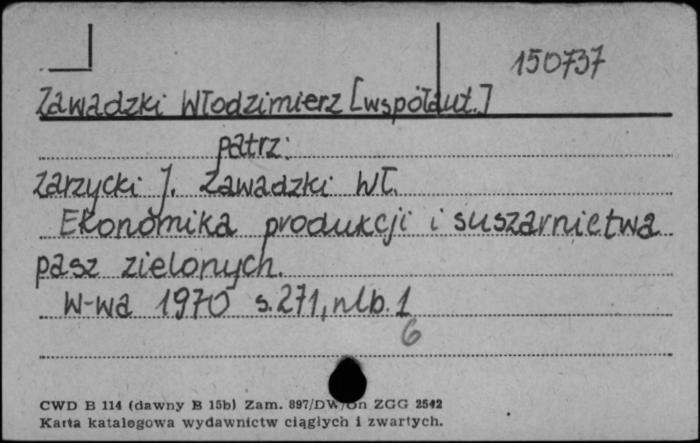 150737
Zawadzki Włodzimierz [współaut.]
patrz:
Zarzycki J. Zawadzki Wł.
Ekonomika produkcji i suszarnictwa
pasz zielonych.
W-wa 1970 s.271, nlb. 1
6
CWD B 114 (dawny B 15b) Zam. 897/DW/Dn ZGG 2542
Karta katalogowa wydawnictw ciągłych i zwartych.